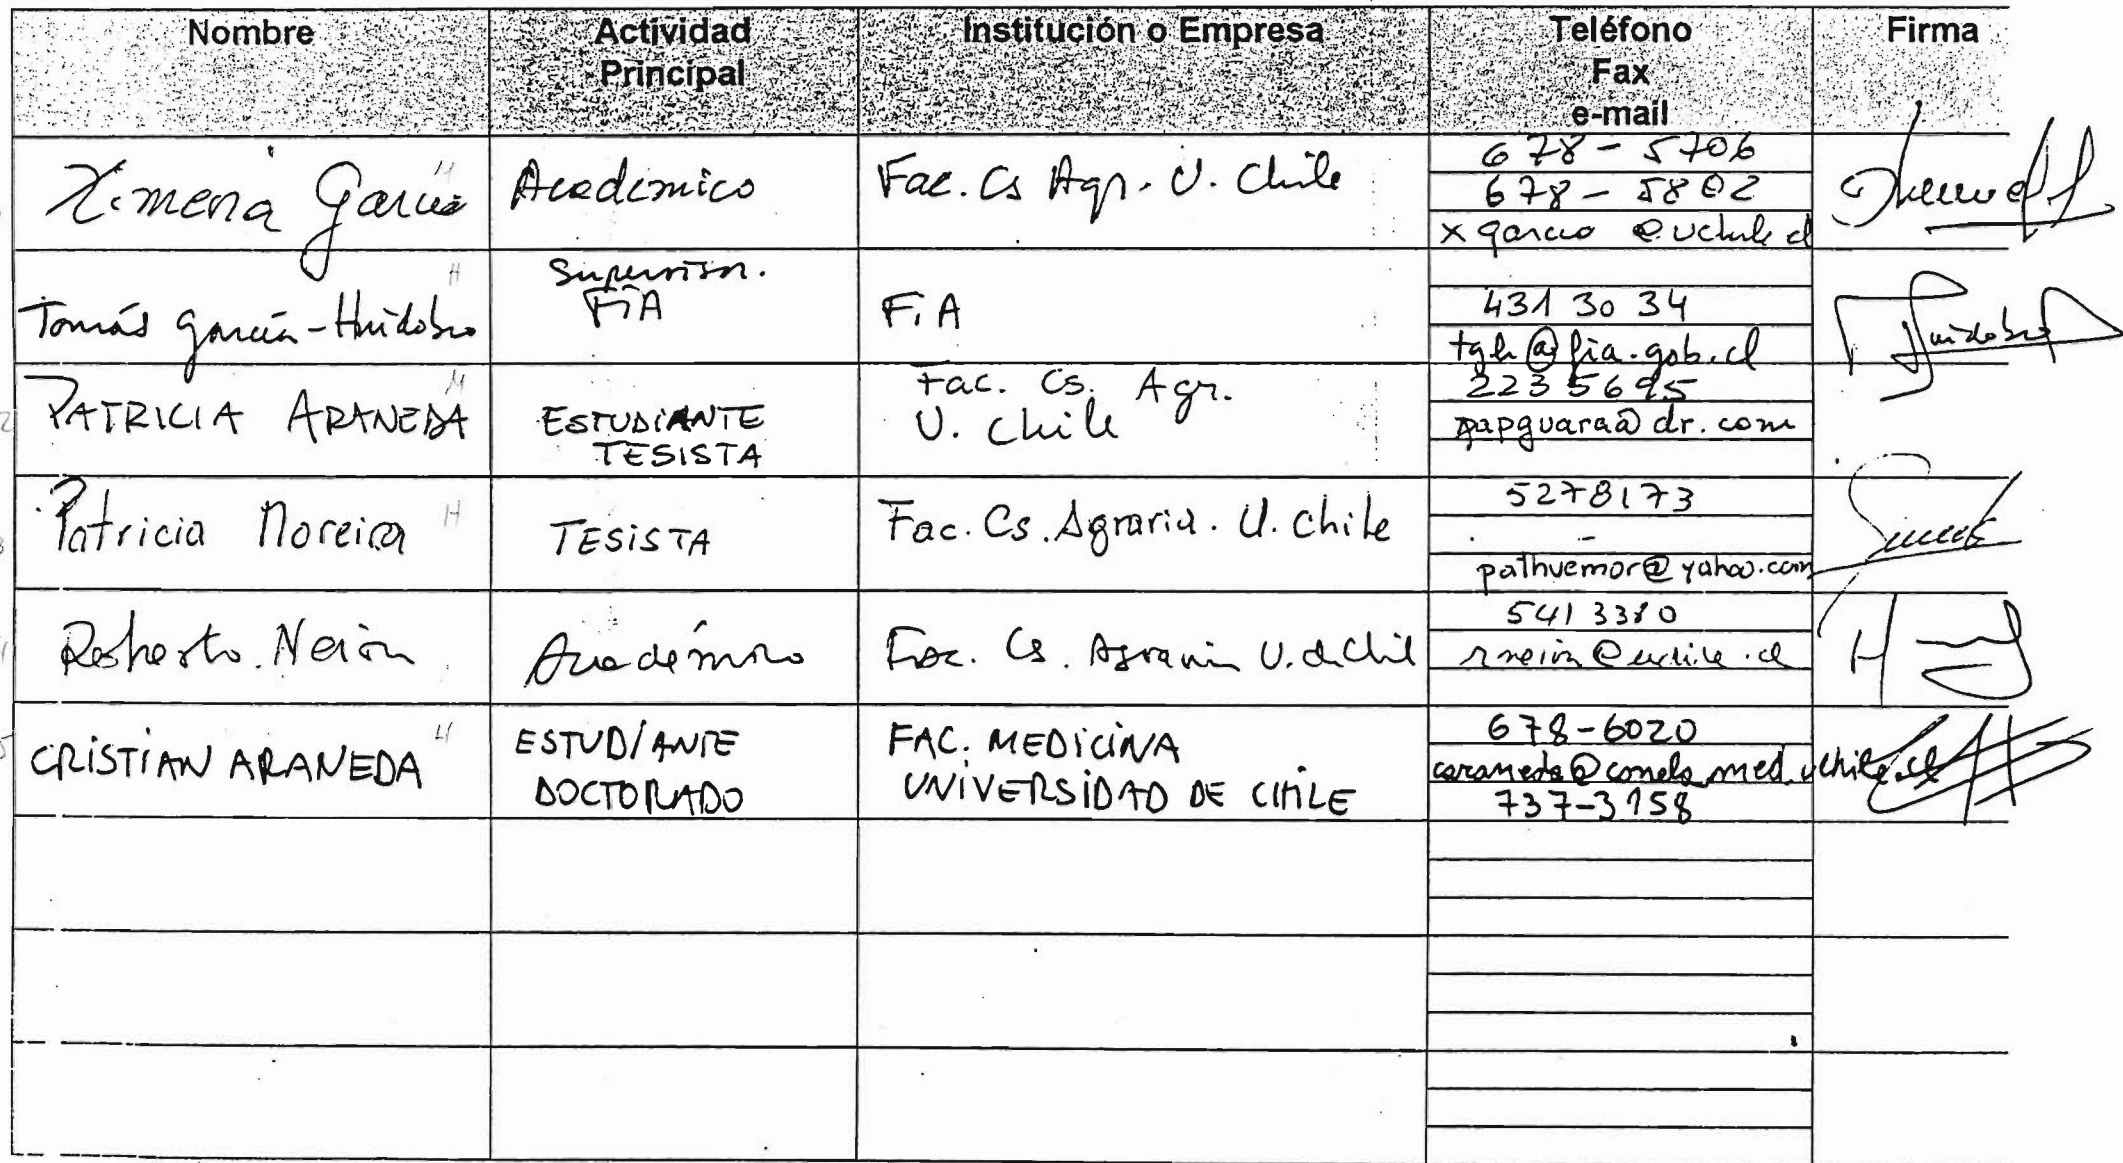 Nombre
Actividad
Principal
Institución o Empresa
Teléfono
Fax
e-mail
Firma
Ximena García
Academico
Fac. Cs Agr. U. Chile
678-5706
678-5802
xgarcia@uchile.cl
Tomás García-Huidobro
Supervisor.
FIA
FIA
431 30 34
tgh@fia.gob.cl
PATRICIA ARANEDA
ESTUDIANTE
TESISTA
Fac. Cs. Agr.
U. Chile
2235695
papguara@dr.com
Patricia Moreira
TESISTA
Fac. Cs. Agraria. U. Chile
5278173
-
pathuemor@yahoo.com
Roberto Neira
Académico
Fac. Cs. Agrarias U. de Chile
541 3380
rneira@uchile.cl
CRISTIAN ARANEDA
ESTUDIANTE
DOCTORADO
FAC. MEDICINA
UNIVERSIDAD DE CHILE
678-6020
caraneda@canela.med.uchile.cl
737-3158